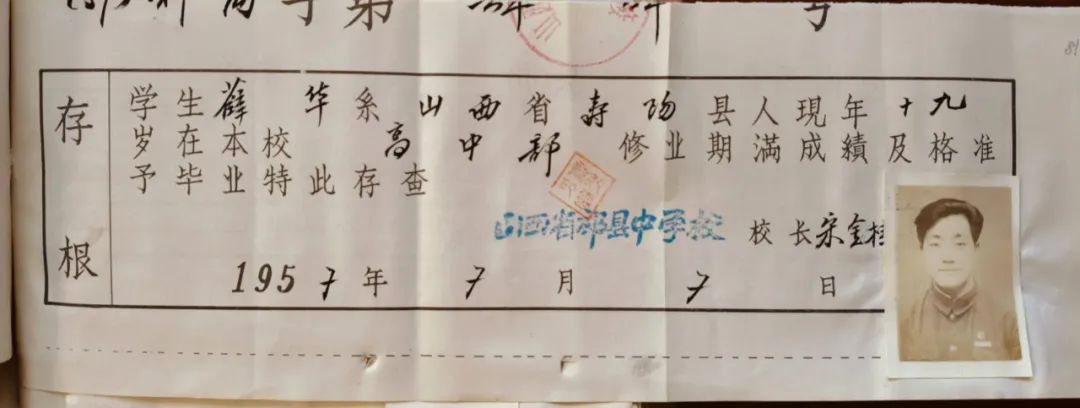 高字第 号
存根
学生薛华系山西省寿阳县人现年十九
岁在本校高中部修业期满成績及格准
予毕业特此存查
山西省祁县中学校 校长宋金桂
1957年7月7日